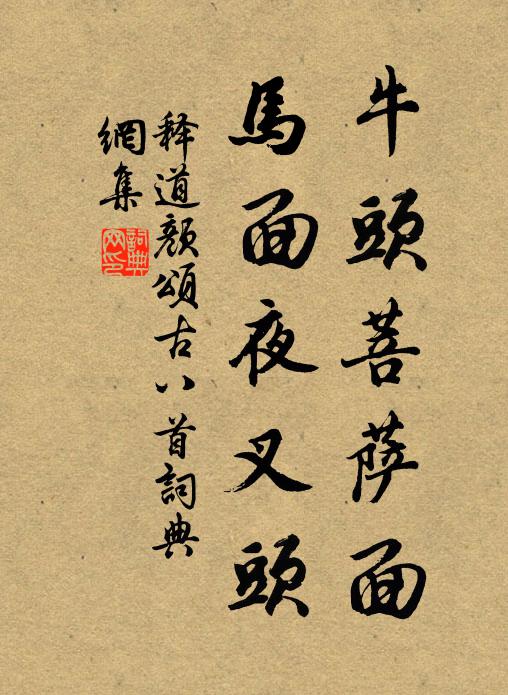 牛頭菩薩面
馬面夜叉頭
釋道顏頌古八首詞典
網集
詞典
网印